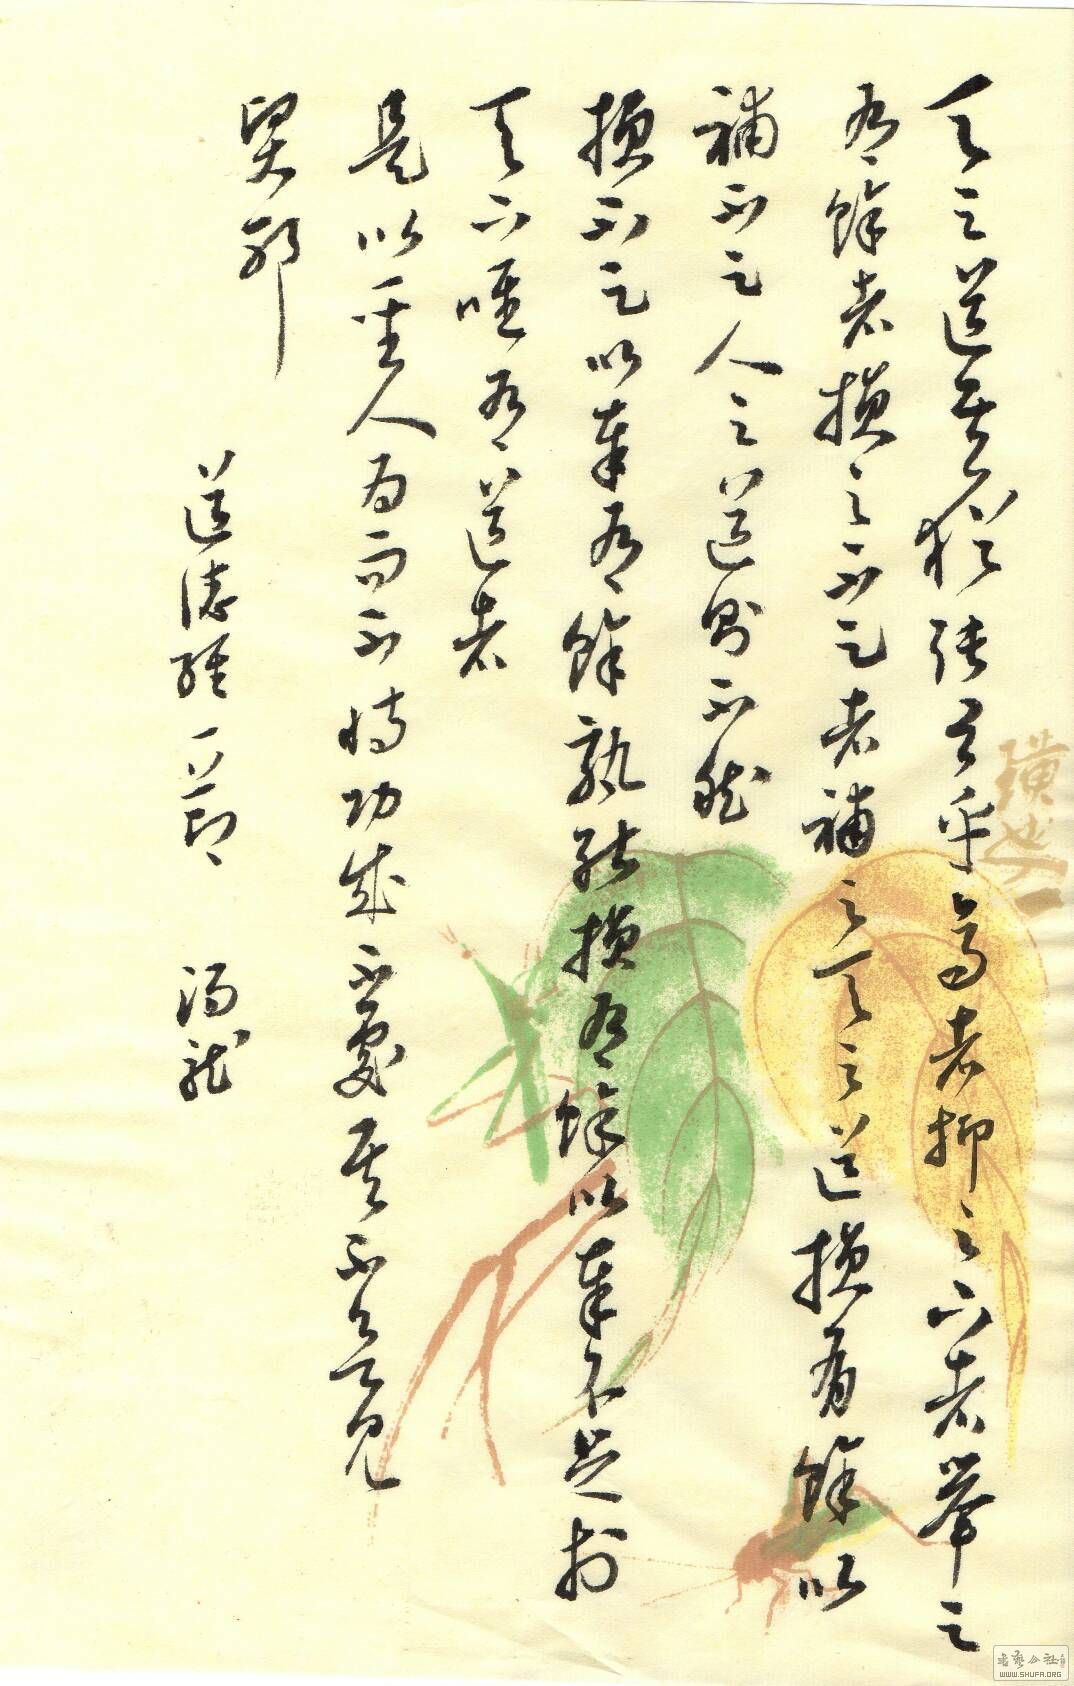 天之道其猶張弓乎高者抑之下者舉之
有餘者損之不足者補之天之道損有餘以
補不足人之道則不然
損不足以奉有餘孰能損有餘以奉不足於
天下唯有道者
是以聖人為而不恃功成不處其不欲見
賢邪
道德經一節 龍
書藝公社
WWW.SHUFA.ORG